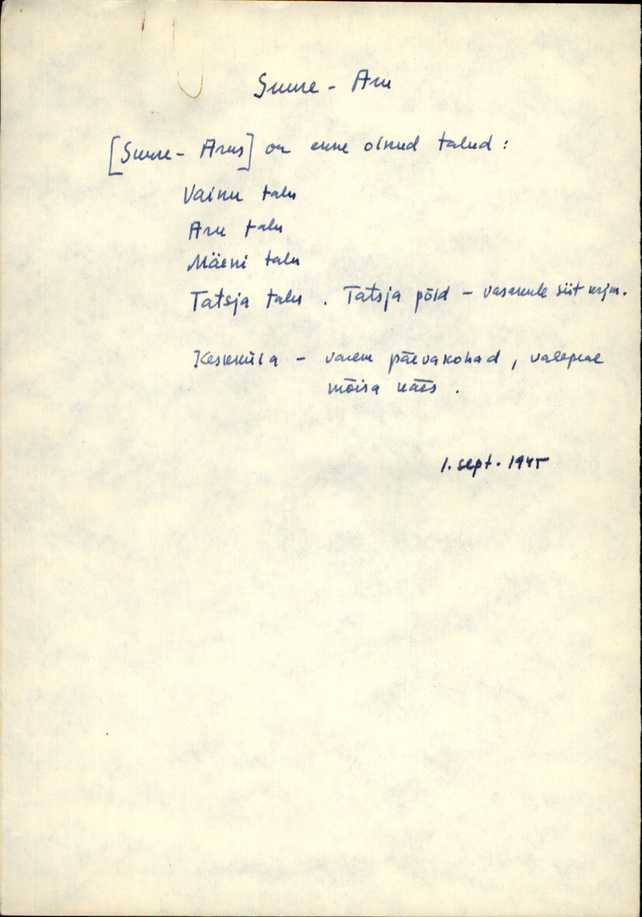 Suure - Aru
[Suure - Arus] on enne olnud talud:
Vainu talu
Aru talu
Mäeni talu
Tatsja talu. Tatsja põld - vasakule siit
Keskküla - varem päevakohad, valspere
mõisa käes.
1. sept. 1945